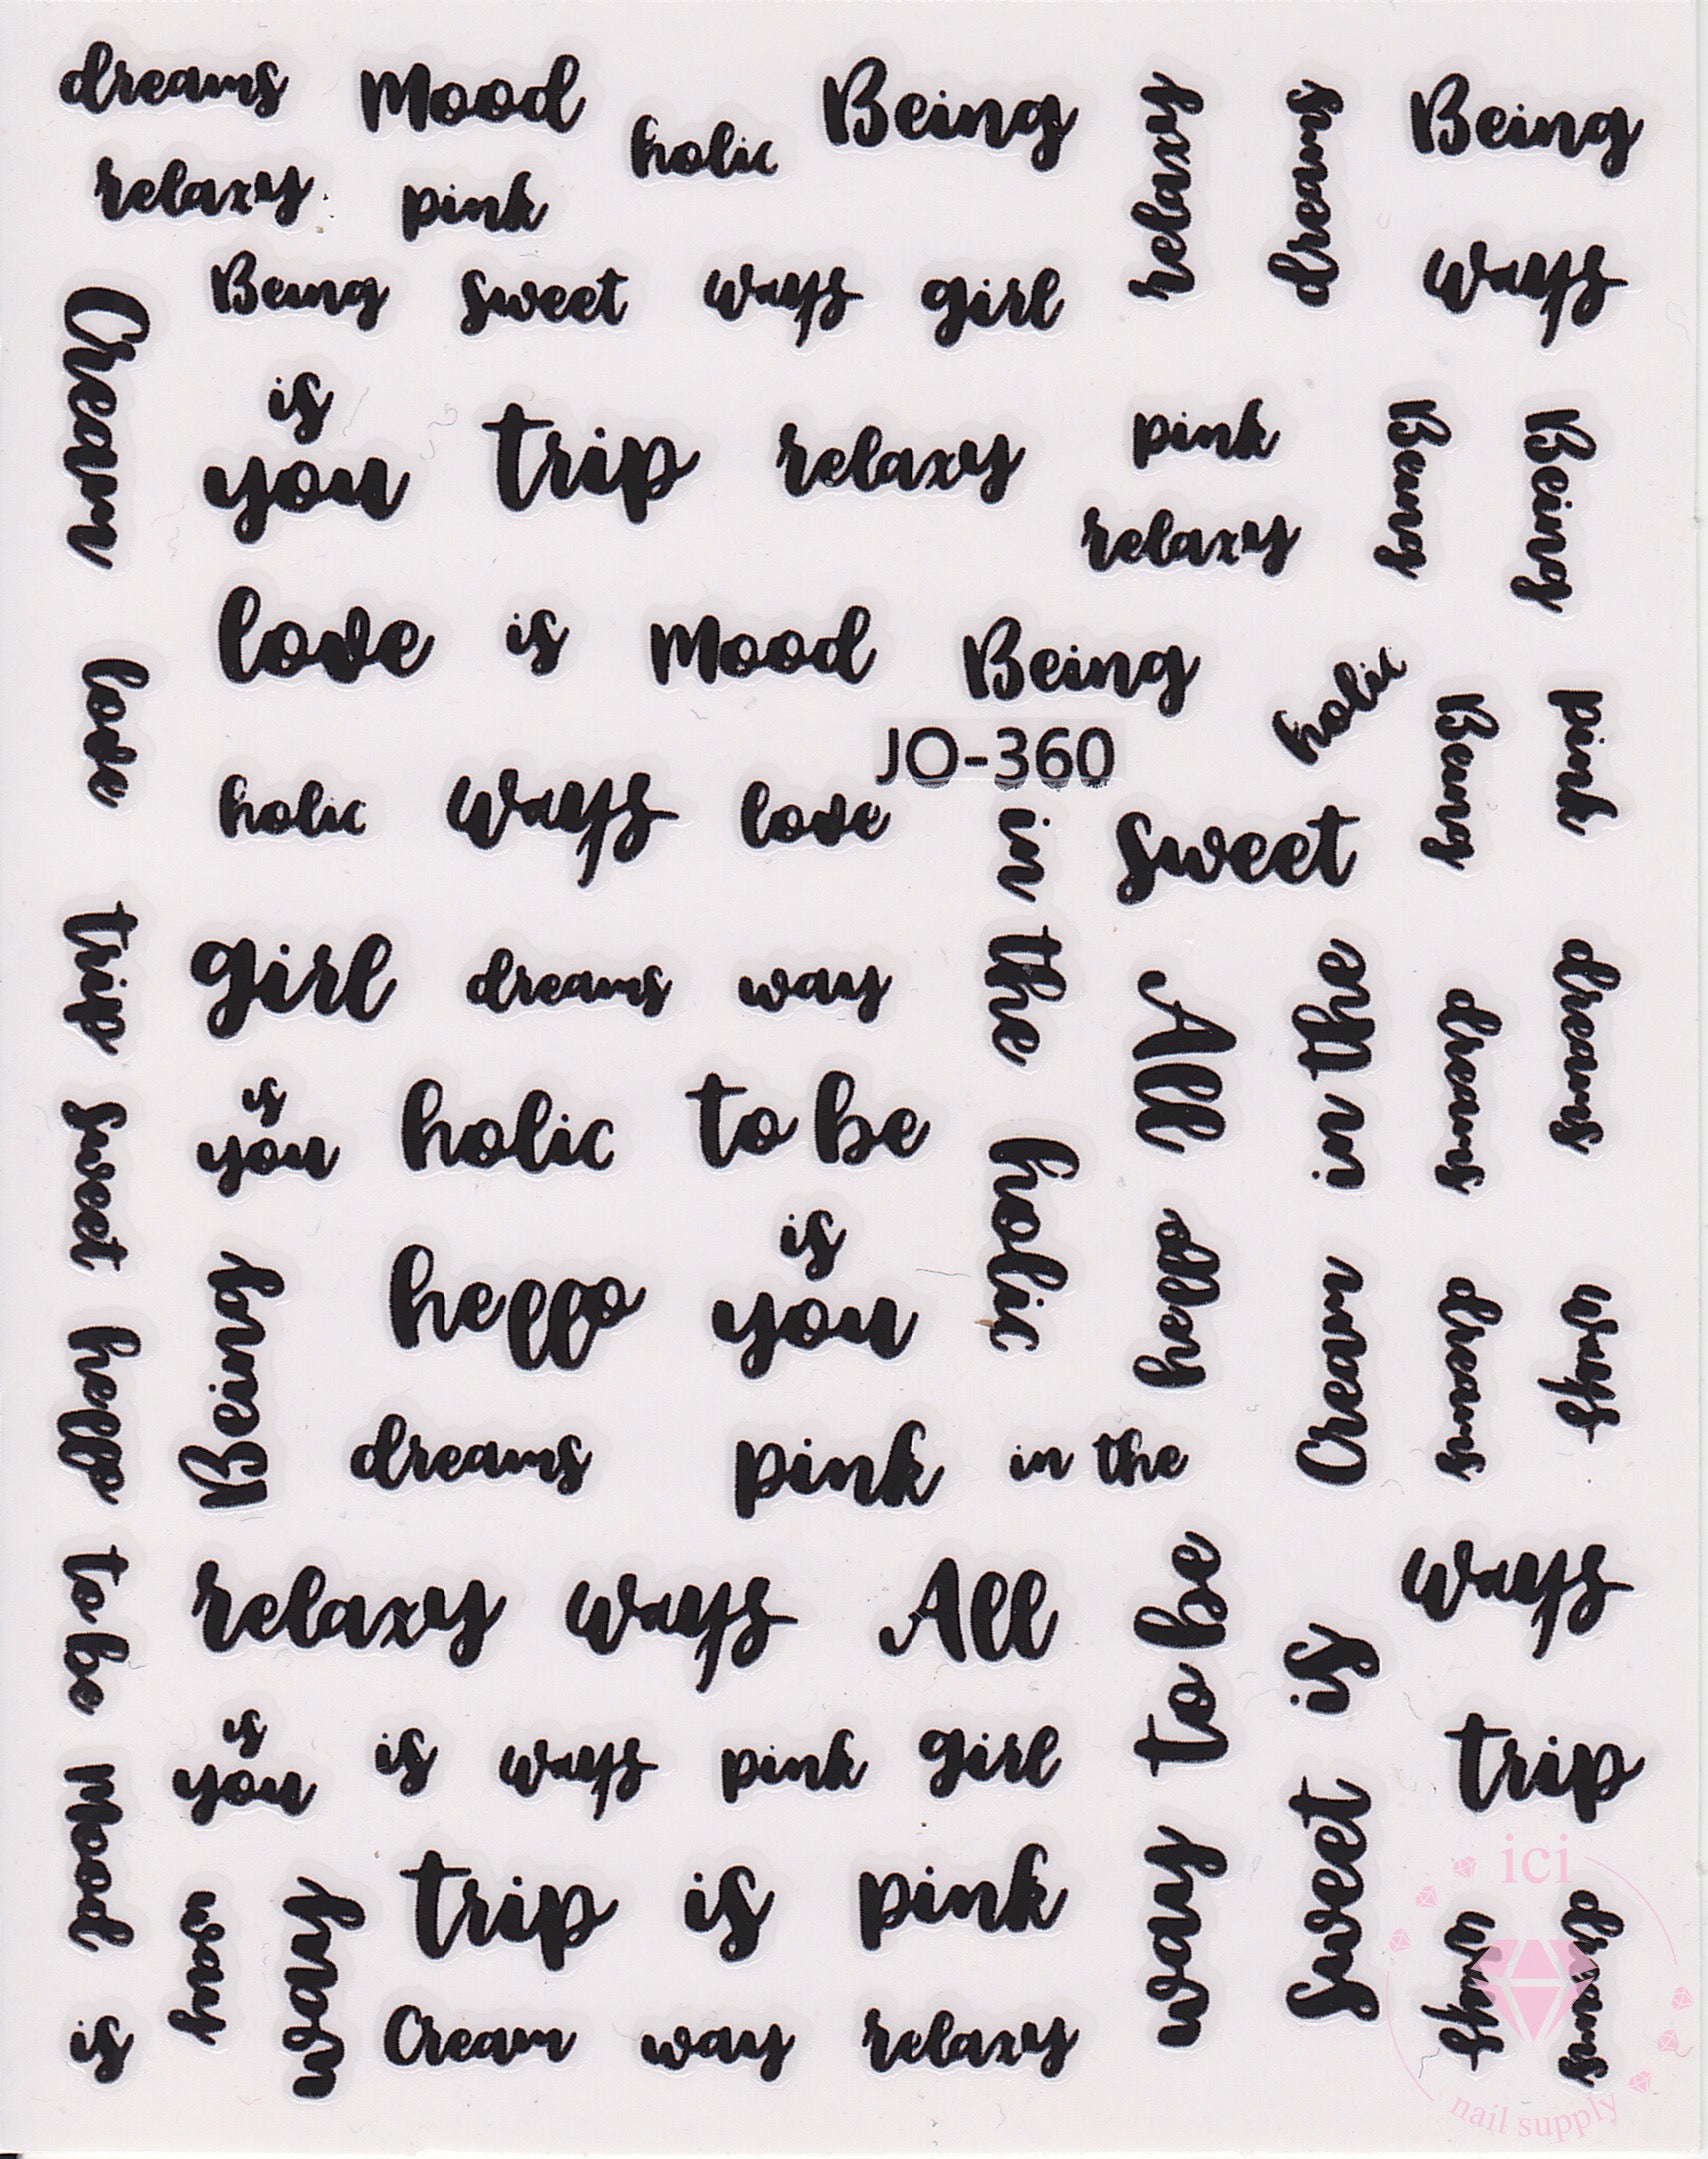 dreams Mood holic Being relaxy dreams Being
relaxy pink
Being sweet ways girl ways
Cream is you trip relaxy pink Being Being
relaxy
love love is Mood Being holic Being pink
JO-360
holic ways love in the sweet
trip girl dreams way All in the dreams dreams
sweet is you holic to be holic
hello Being hello is you hello Cream dreams ways
dreams pink in the
to be relaxy ways All to be is ways
Mood is you is ways pink girl trip
way way trip is pink way sweet ways dreams
is Cream way relaxy
ici
nail supply